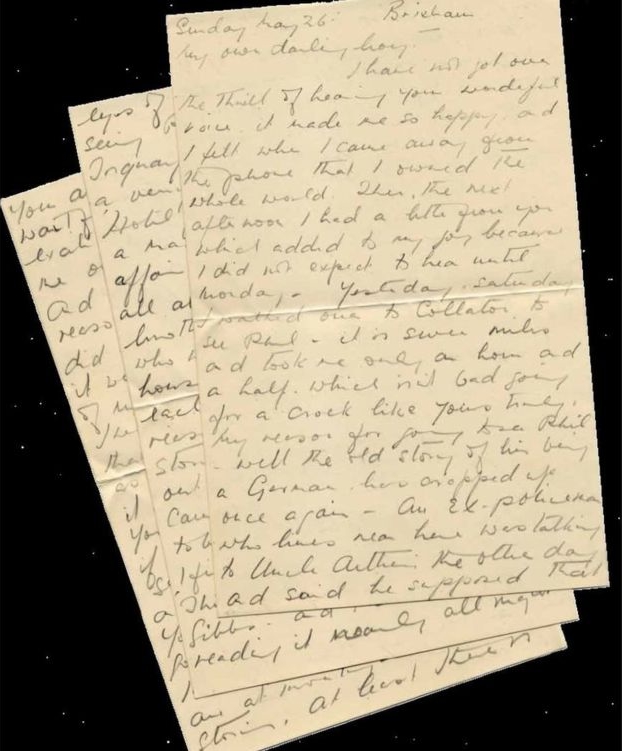 Sunday May 26. Brixham
My own darling boy -
I have not got over
the thrill of hearing your wonderful
voice. it made me so happy, and
I felt when I came away from
the phone that I owned the
whole world. Then, the next
afternoon I had a letter from you
which added to my joy because
I did not expect to hear until
Monday. - Yesterday, Saturday
I walked over to Collaton to
see Phil - it is seven miles
and took me only an hour and
a half. which isn't bad going
for a crock like yours truly.
My reason for going to see Phil
- well the old story of him being
a German has cropped up
once again - An Ex-policeman
who lives near here was talking
to Uncle Arthur the other day
and said he supposed that
eyes of
seing
Torquay
a
Hotel
a
affair
all
who
hous
each
reas
stor
out
Cam
to
The
Gibbs. and
reading it nearly all
You a
want
me
ad
reaso
did
it
of
the
it
You
if
a
are at
storm. At least